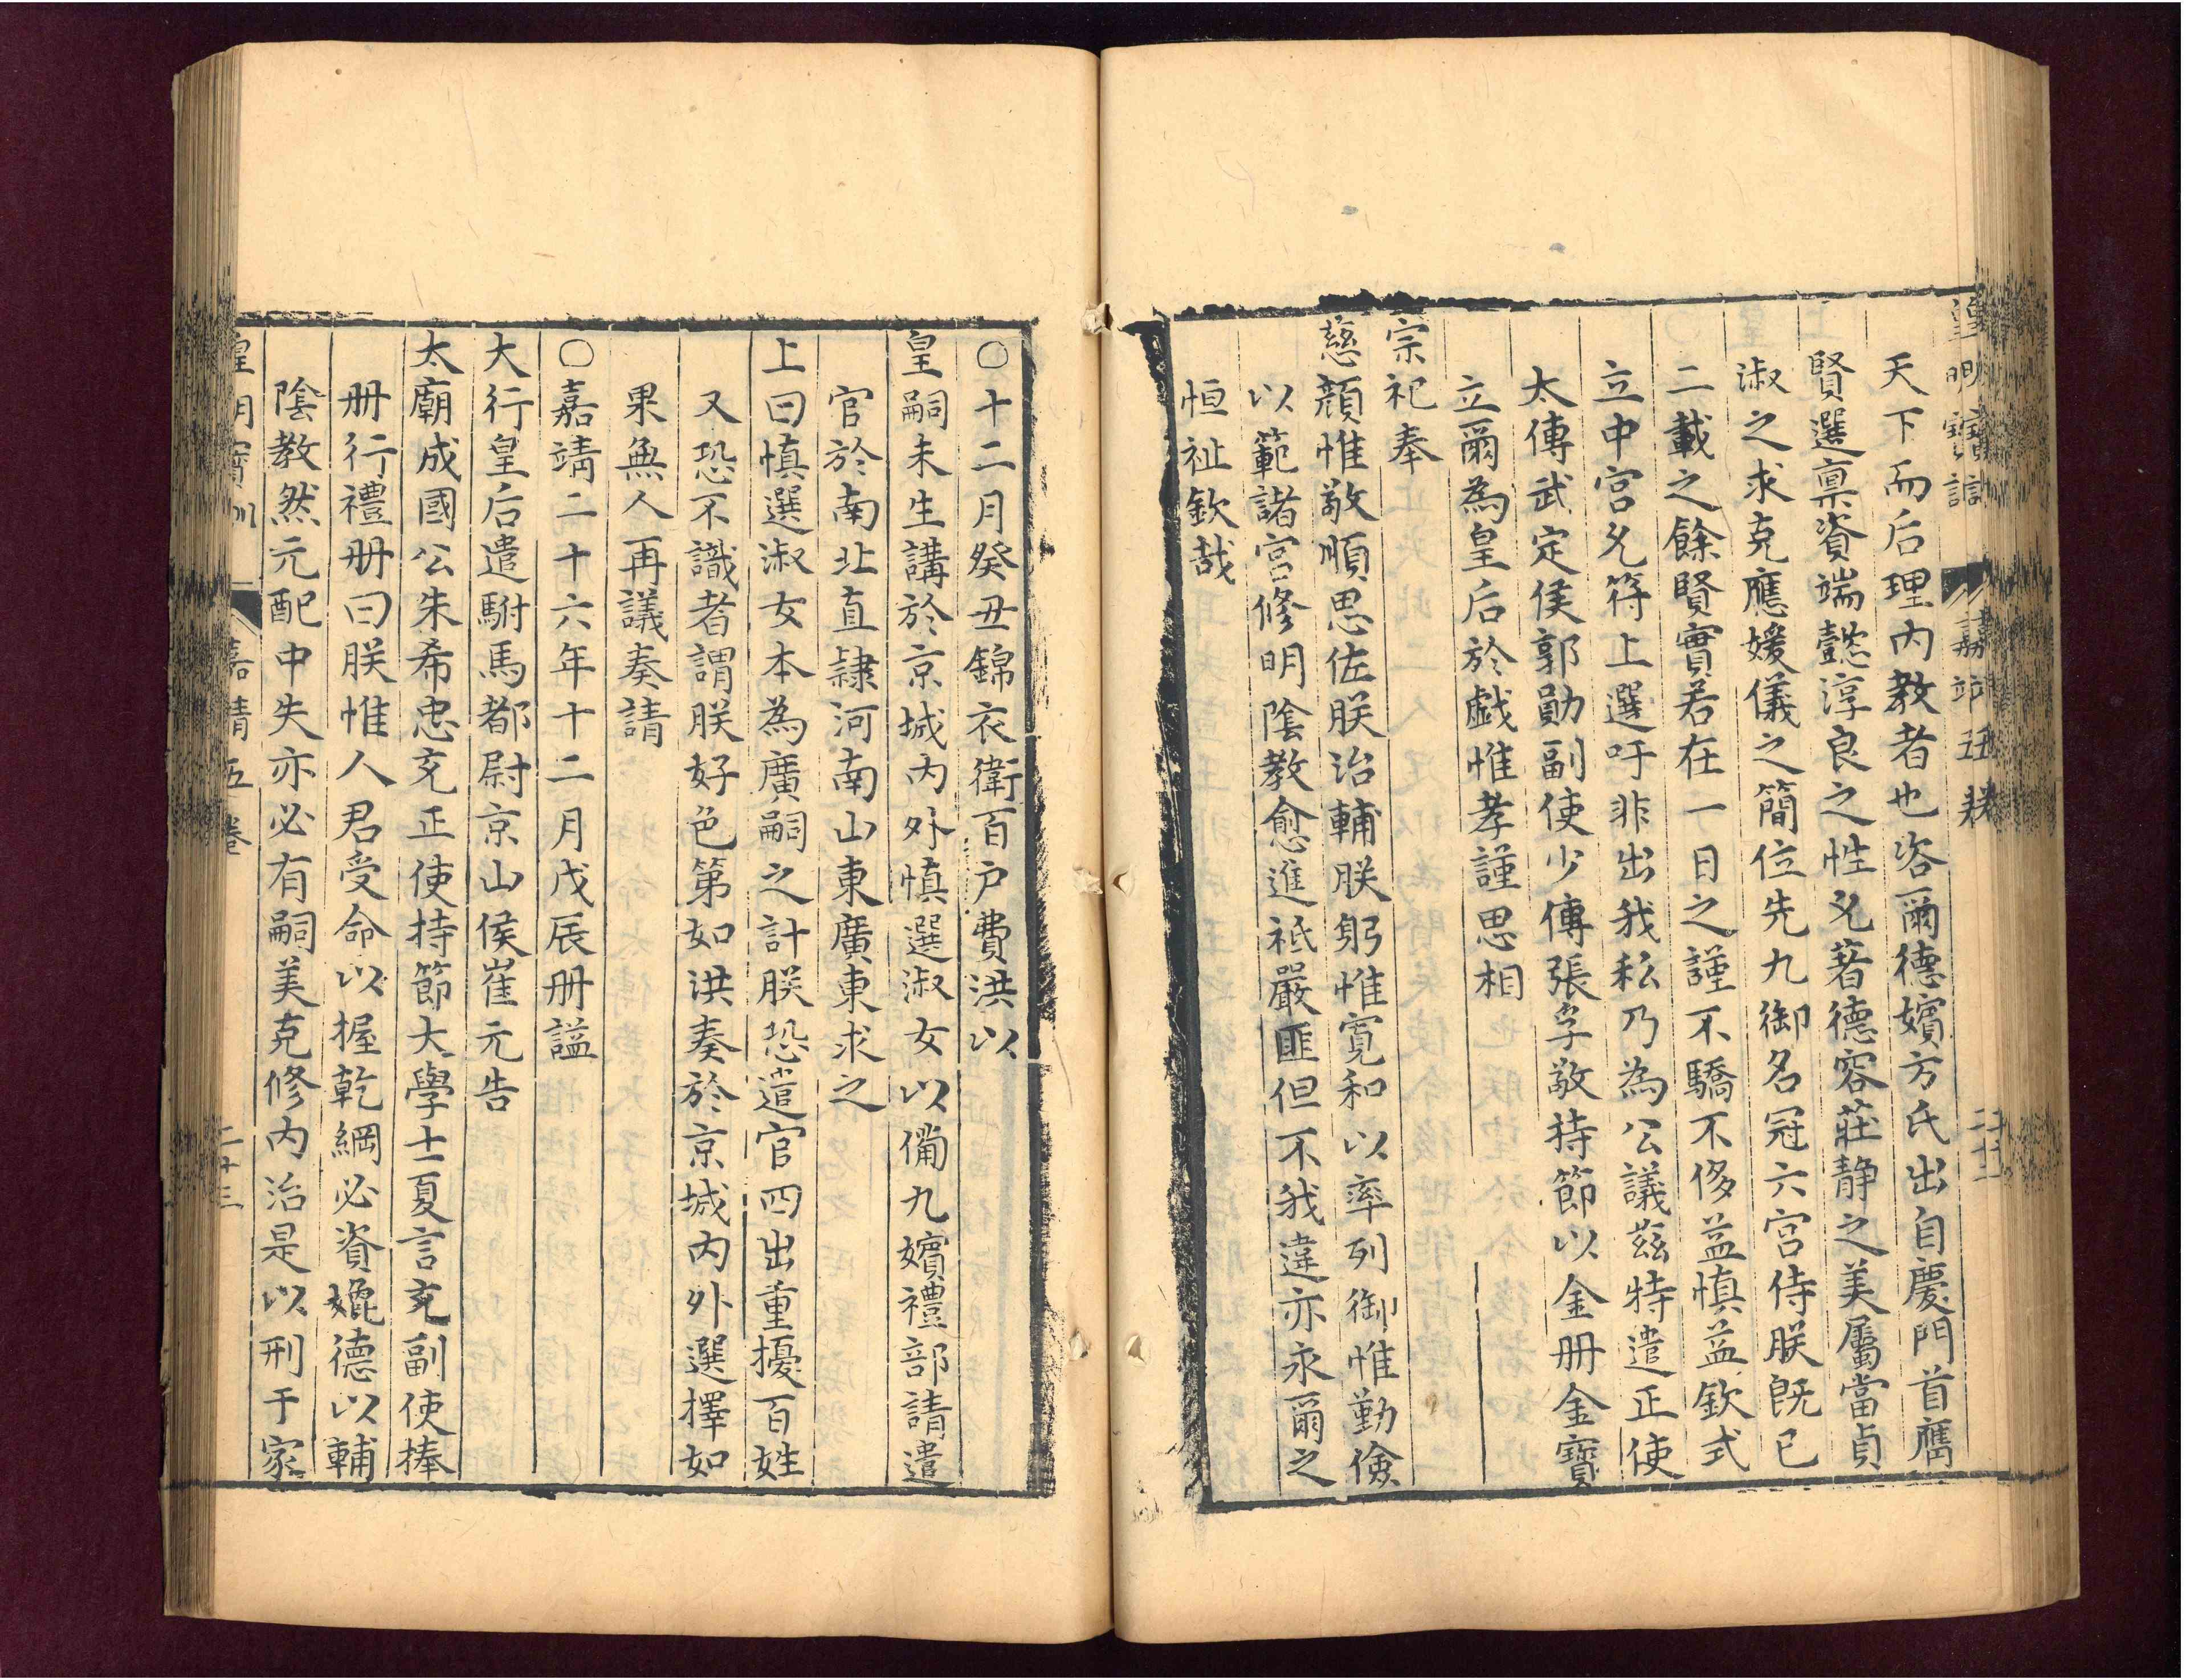 皇明寶訓 嘉靖五卷 二十二
天下而后理內教者也咨爾德嬪方氏出自慶門首膺
賢選稟資端懿淳良之性允著德容莊静之美屬當貞
淑之求克應媛儀之簡位先九御名冠六宮侍朕旣已
二載之餘賢實若在一日之謹不驕不侈益慎益欽式
立中宮允符上選吁非出我私乃為公議茲特遣正使
太傅武定侯郭勛副使少傅張孚敬持節以金册金寶
立爾為皇后於戲惟孝謹思相
宗祀奉
慈顏惟敬順思佐朕治輔朕躬惟寬和以率列御惟勤儉
以範諸宮修明陰教愈進祗嚴匪但不我違亦永爾之
恒祉欽哉
○十二月癸丑錦衣衛百戶費洪以
皇嗣未生講於京城內外慎選淑女以備九嬪禮部請遣
官於南北直隸河南山東廣東求之
上曰慎選淑女本為廣嗣之計朕恐遣官四出重擾百姓
又恐不識者謂朕好色第如洪奏於京城內外選擇如
果無人再議奏請
○嘉靖二十六年十二月戊辰册謚
大行皇后遣駙馬都尉京山侯崔元告
太廟成國公朱希忠充正使持節大學士夏言充副使捧
册行禮册曰朕惟人君受命以握乾綱必資媲德以輔
陰教然元配中失亦必有嗣美克修內治是以刑于家
皇明寶訓 嘉靖五卷 二十三